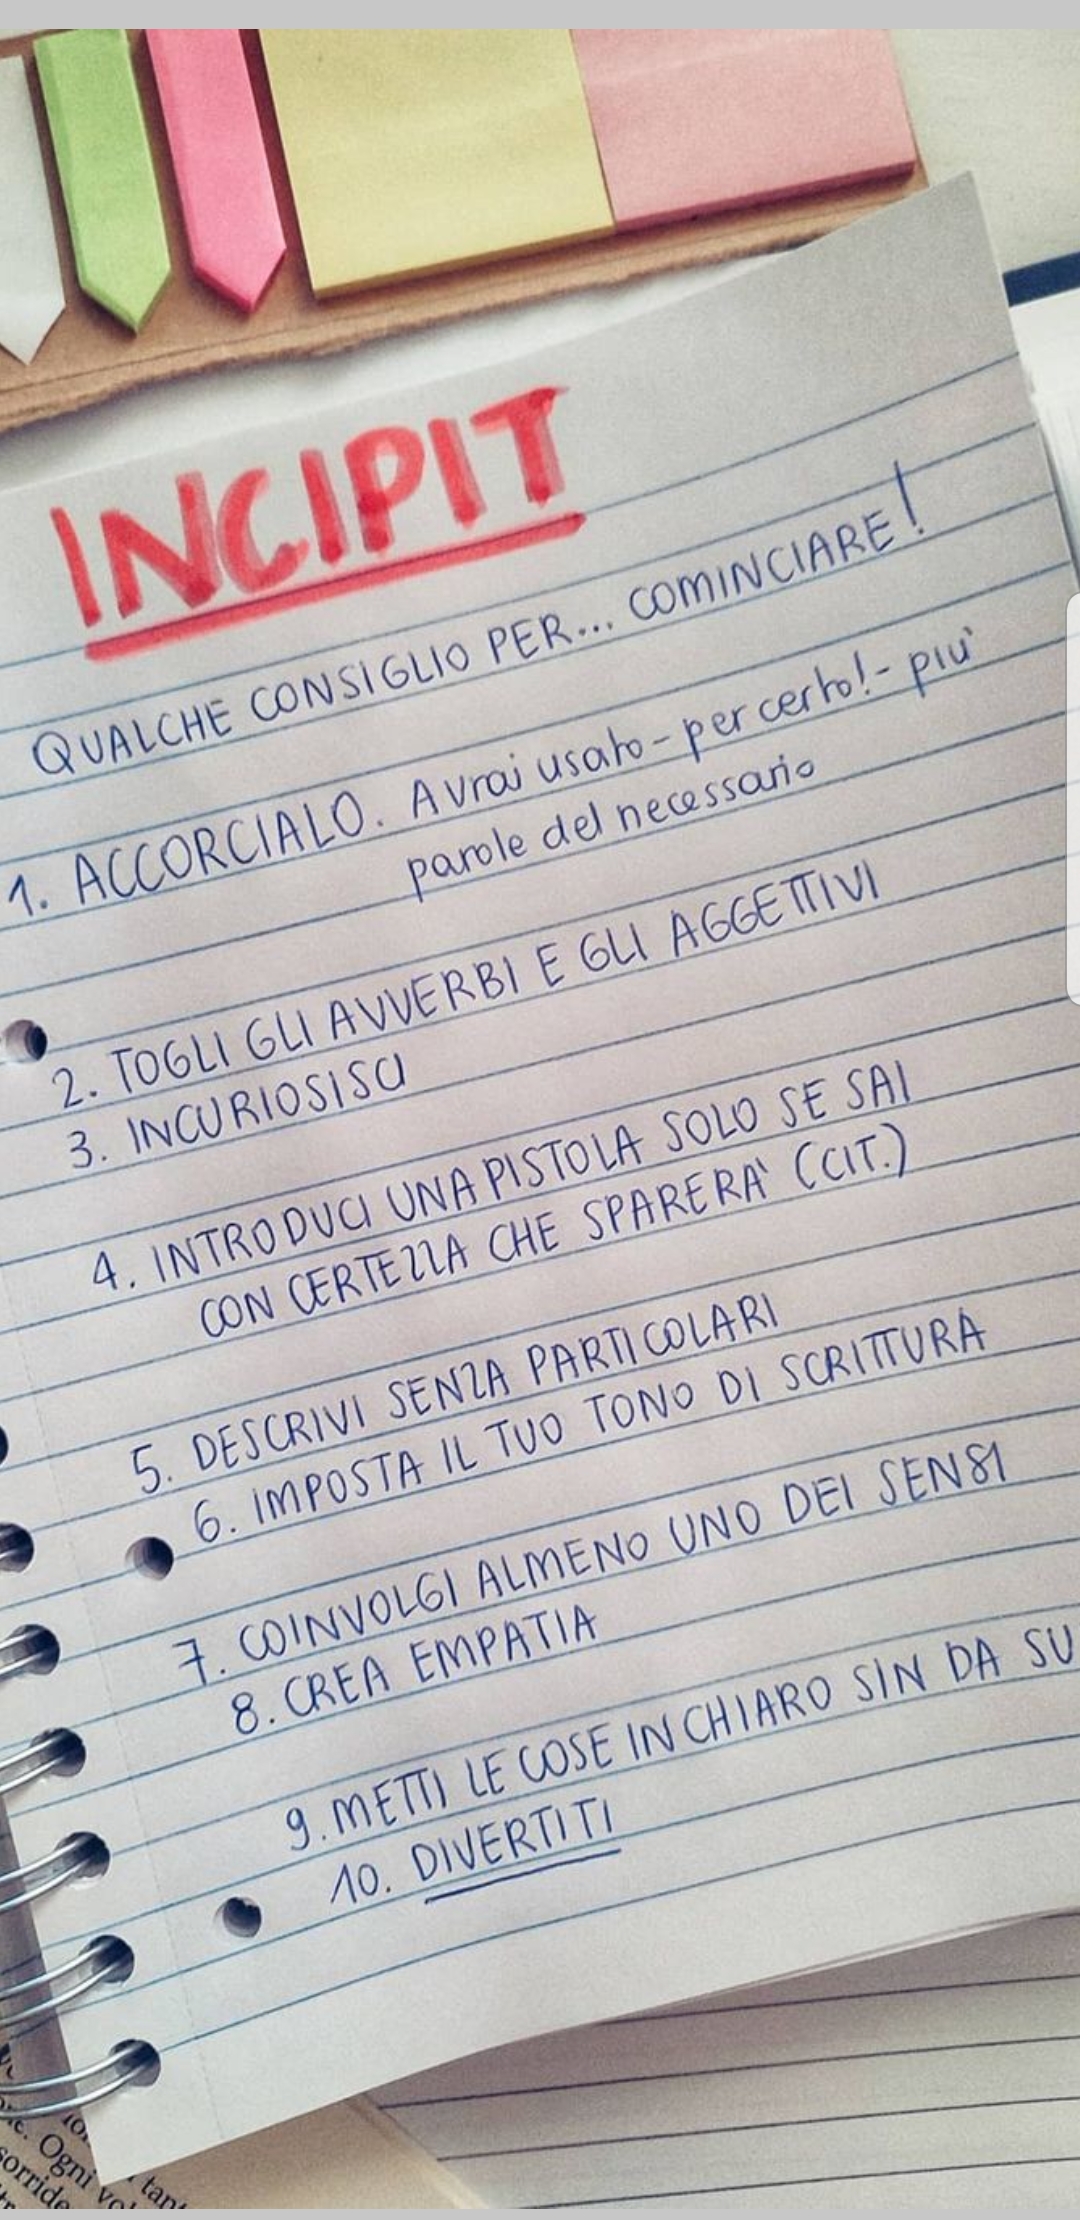 INCIPIT
QUALCHE CONSIGLIO PER... COMINCIARE!
1. ACCORCIALO. Avrai usato - per certo! - più
parole del necessario
2. TOGLI GLI AVVERBI E GLI AGGETTIVI
3. INCURIOSISCI
4. INTRODUCI UNA PISTOLA SOLO SE SAI
CON CERTEZZA CHE SPARERA' (CIT.)
5. DESCRIVI SENZA PARTICOLARI
6. IMPOSTA IL TUO TONO DI SCRITTURA
7. COINVOLGI ALMENO UNO DEI SENSI
8. CREA EMPATIA
9. METTI LE COSE IN CHIARO SIN DA SU
10. DIVERTITI
Ogni
sorride